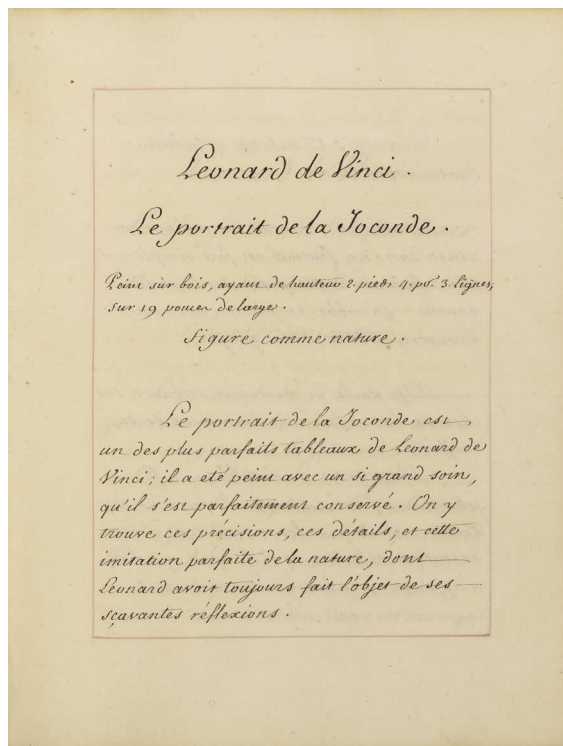 Leonard de Vinci.
Le portrait de la Joconde.
Peint sur bois, ayant de hauteur 2. pieds 4. po. 3. lignes,
sur 19 pouces de large.
figure comme nature.
Le portrait de la Joconde est
un des plus parfaits tableaux de Leonard de
Vinci; il a eté peint avec un si grand soin,
qu'il s'est parfaitement conservé. On y
trouve ces précisions, ces détails, et cette
imitation parfaite de la nature, dont
Leonard avoit toujours fait l'objet de ses
sçavantes réflexions.